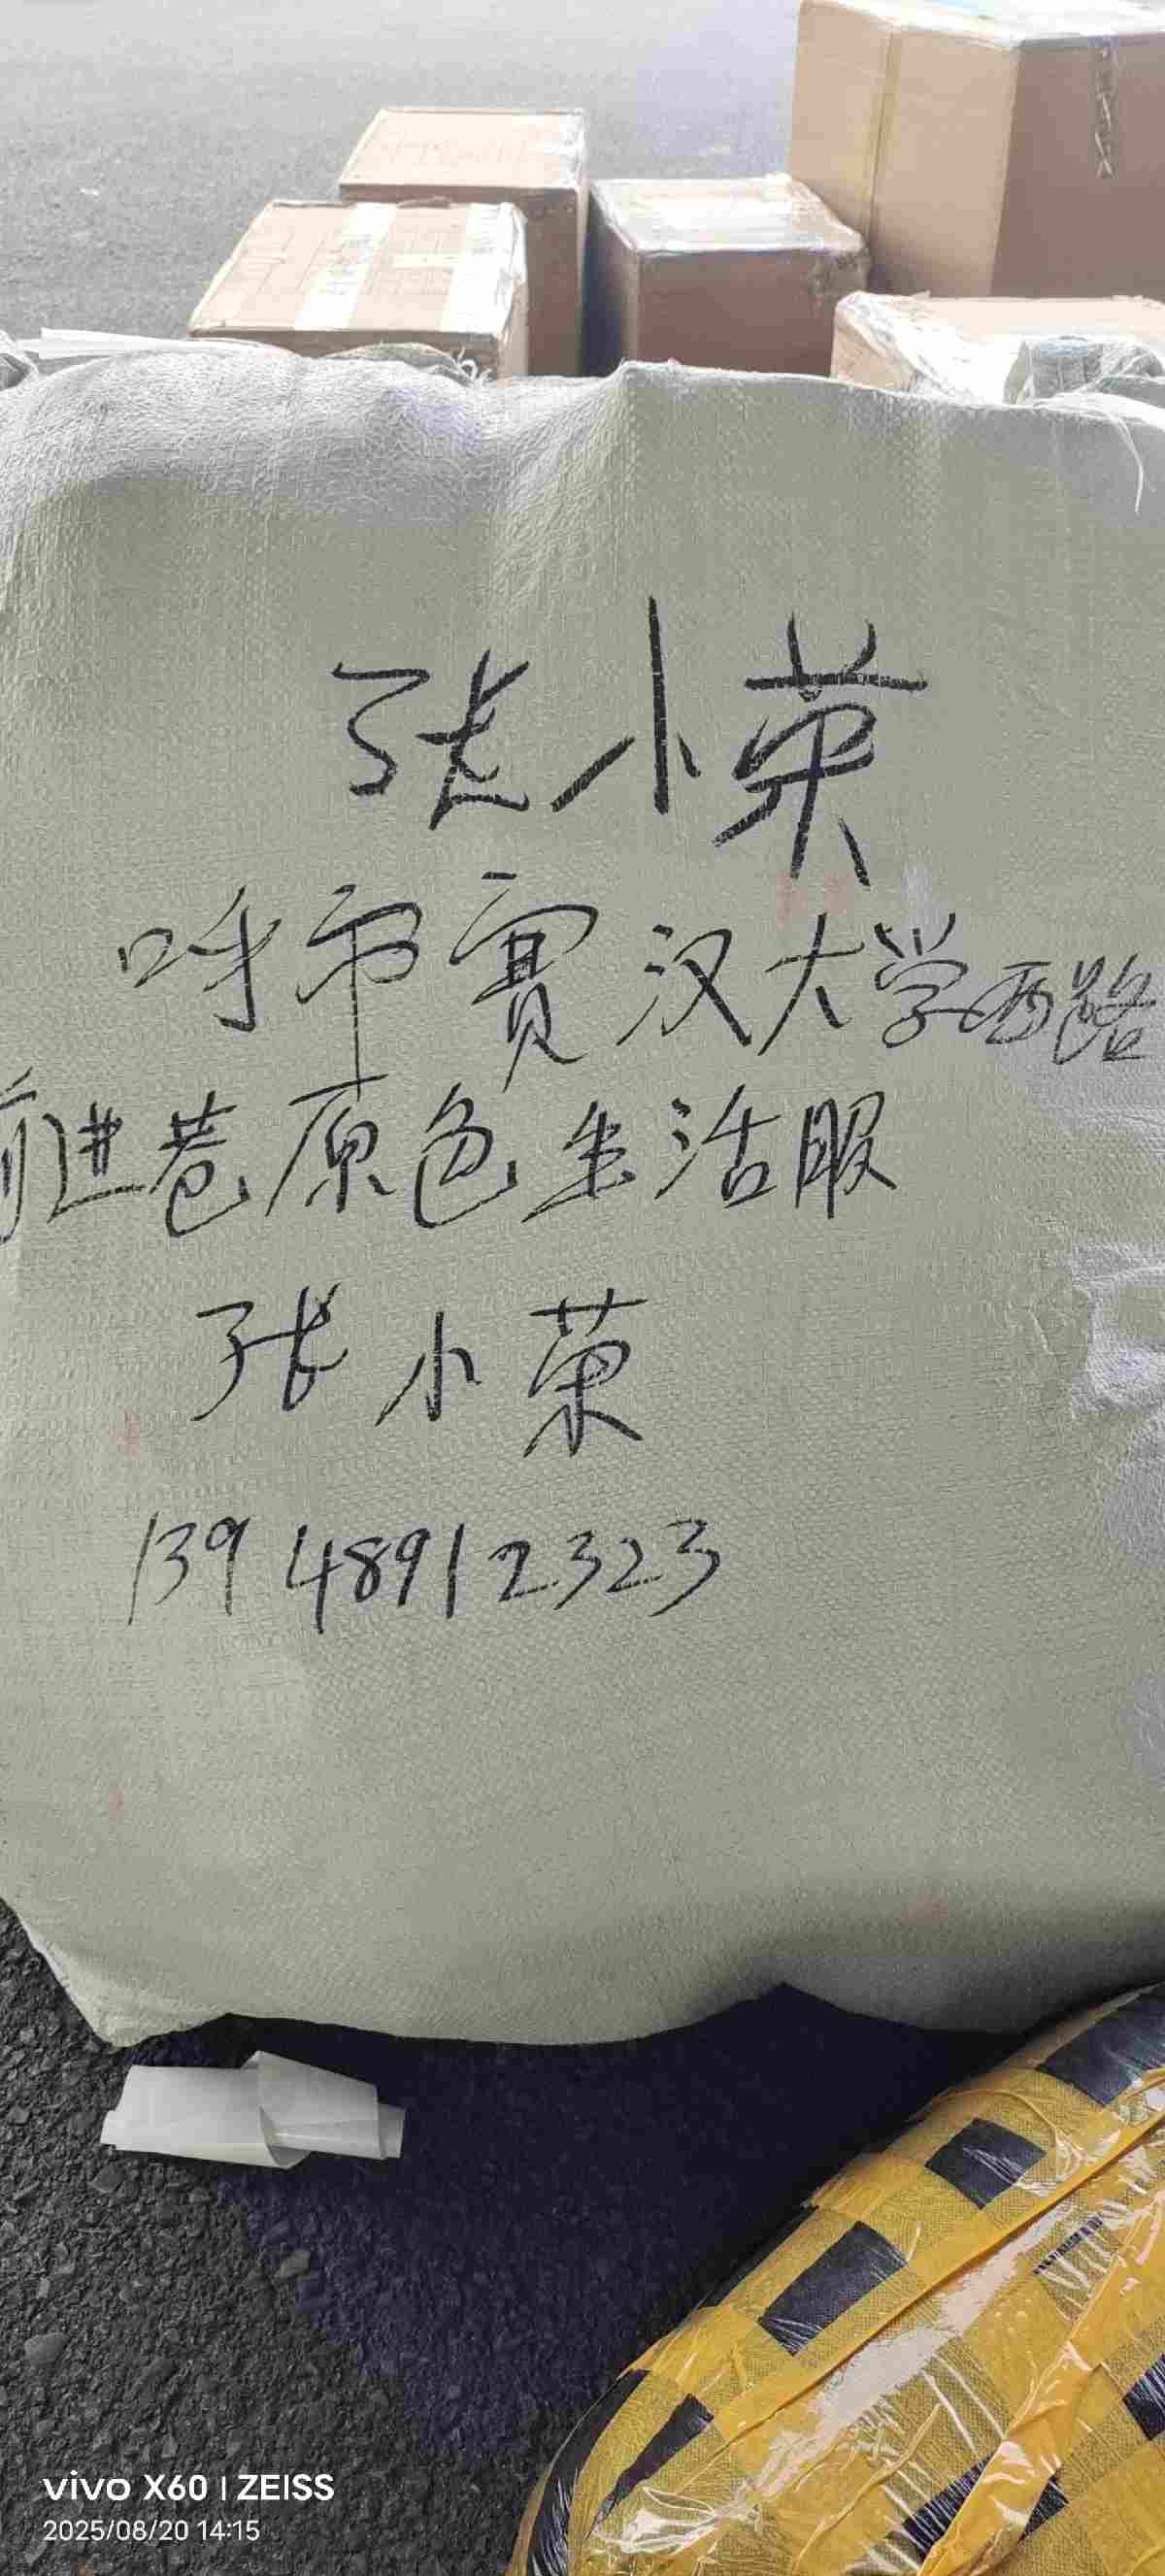 张小荣
呼市赛汉大学西路
前进巷原色生活服
张小荣
13948912323
vivo X60 | ZEISS
2025/08/20 14:15